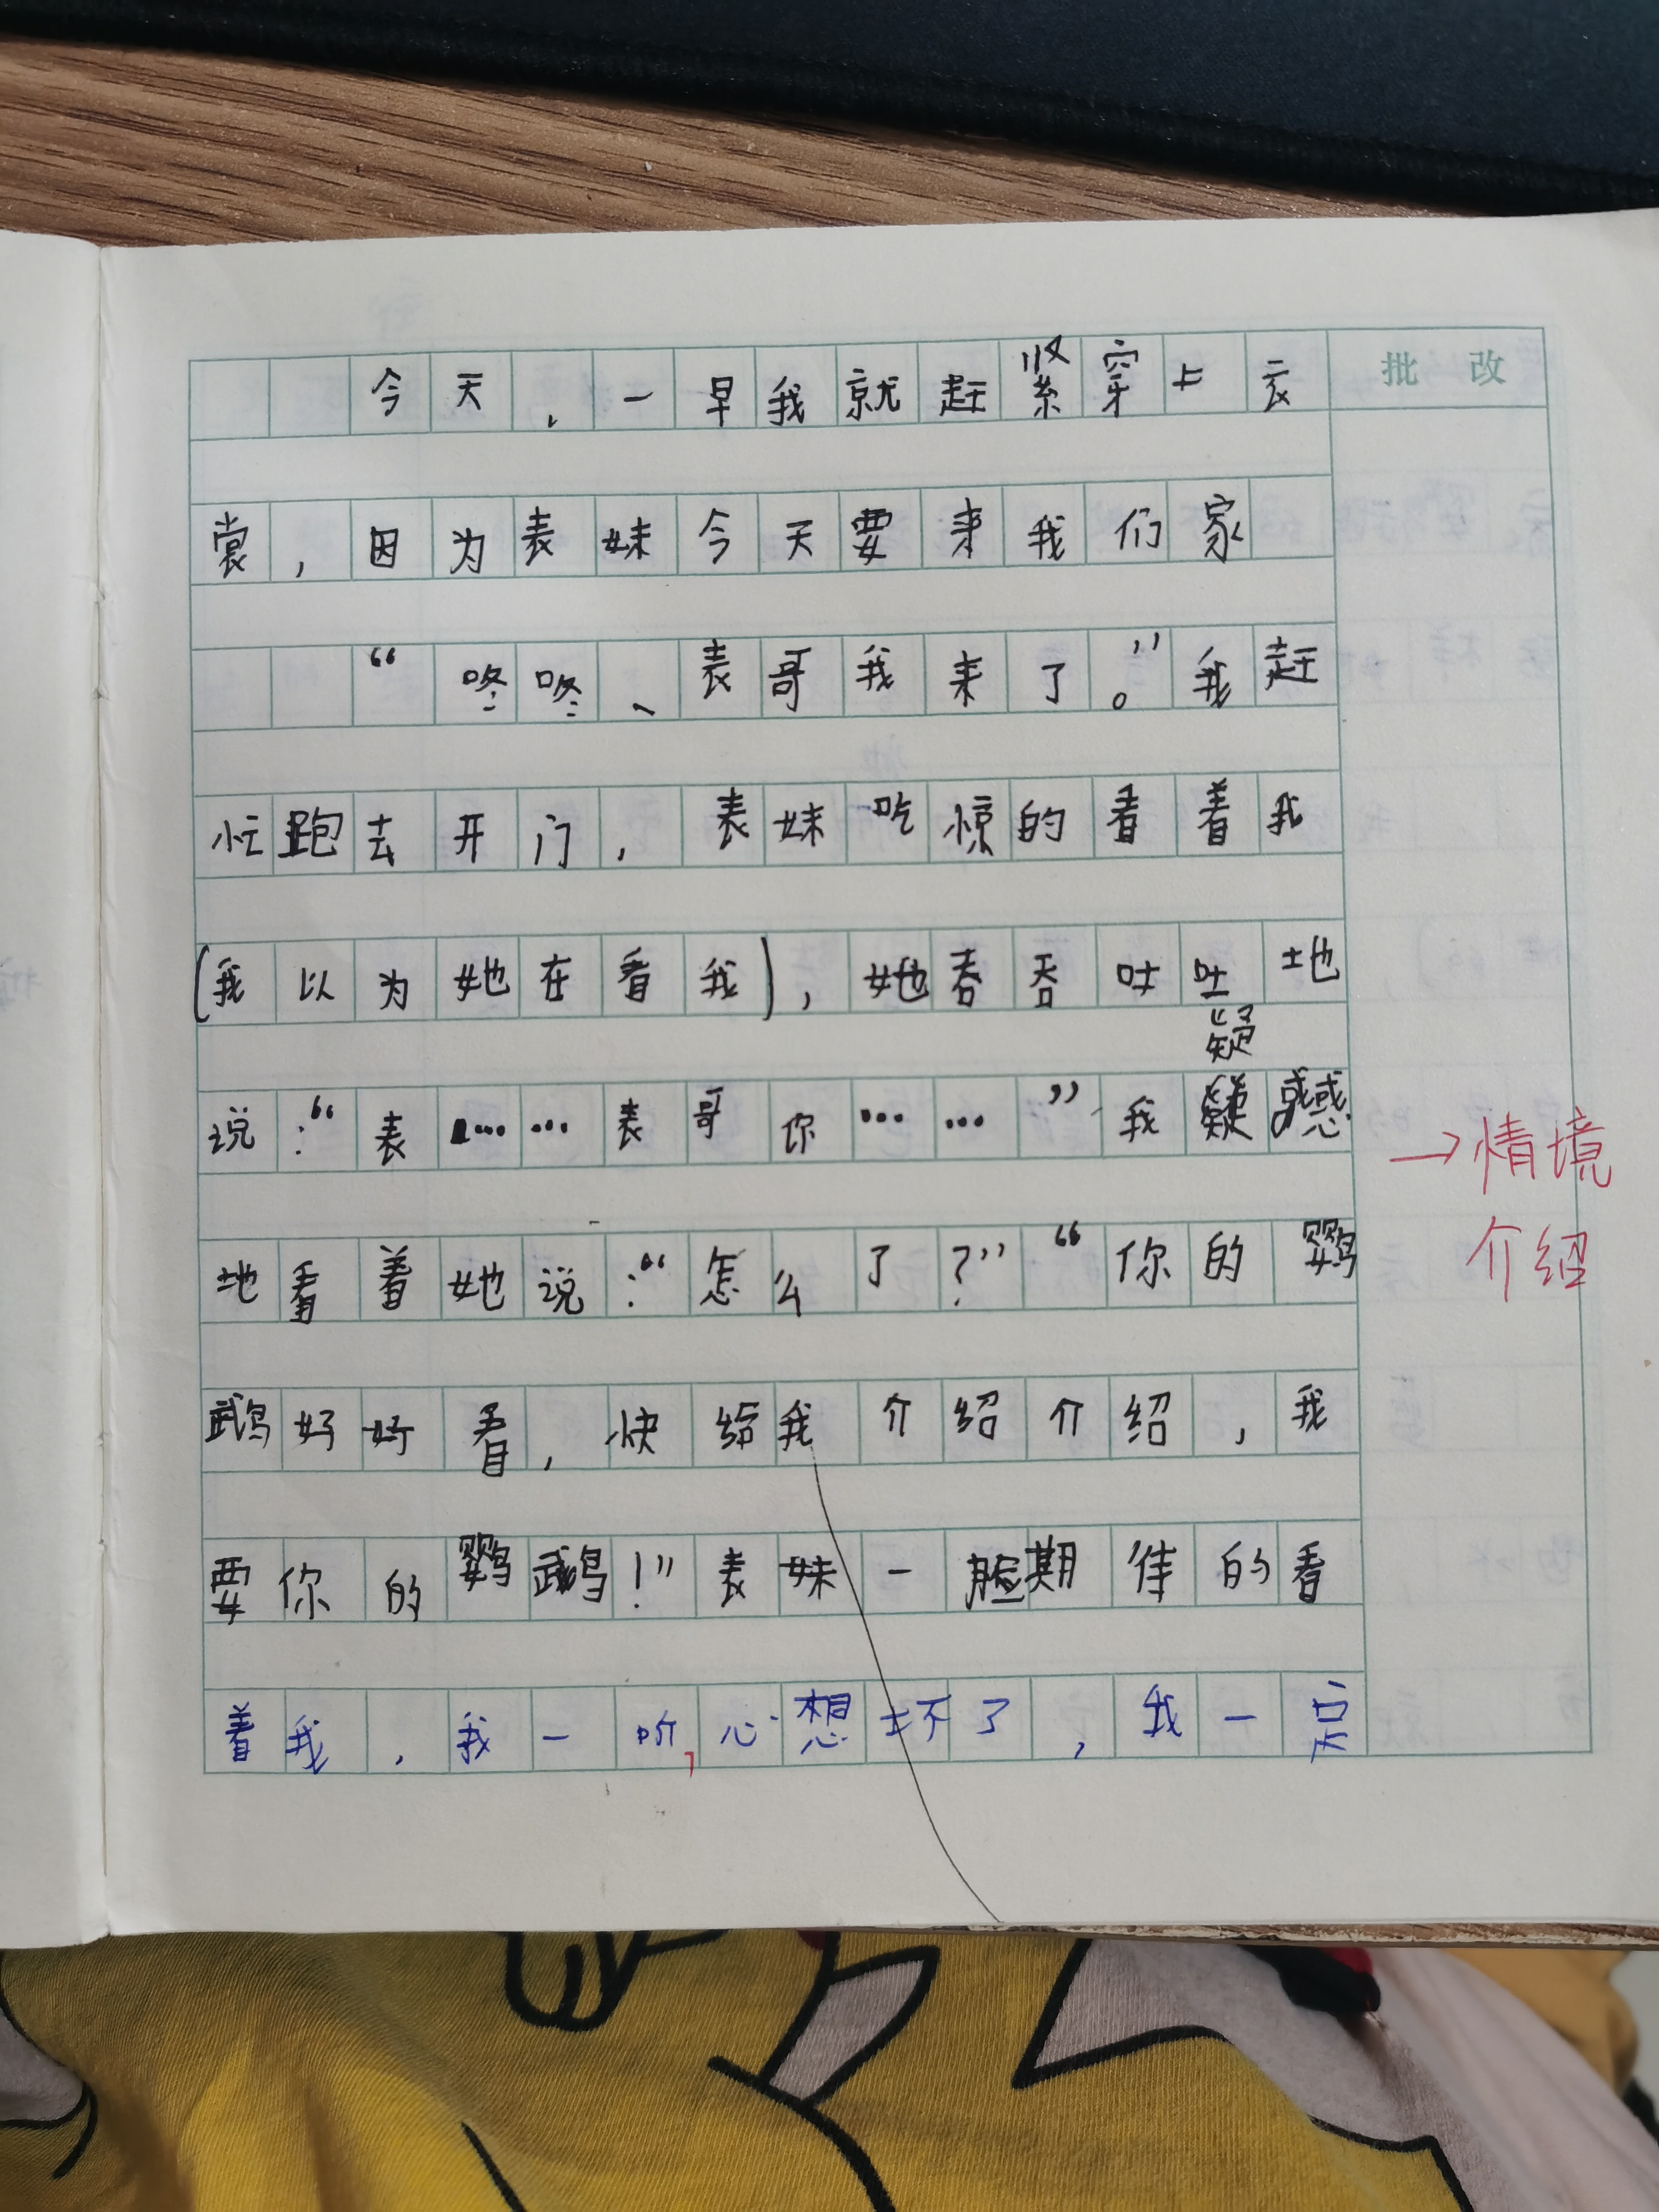 批 改
今天，一早我就赶紧穿上衣
裳，因为表妹今天要来我们家
“咚咚、表哥我来了。”我赶
忙跑去开门，表妹吃惊的看着我
(我以为她在看我)，她吞吞吐吐地
疑
说：“表……表哥你……”我疑惑
→情境
地看着她说：“怎么了？”“你的鹦
介绍
鹉好好看，快给我介绍介绍，我
要你的鹦鹉！”表妹一脸期待的看
着我，我一听，心想坏了，我一定